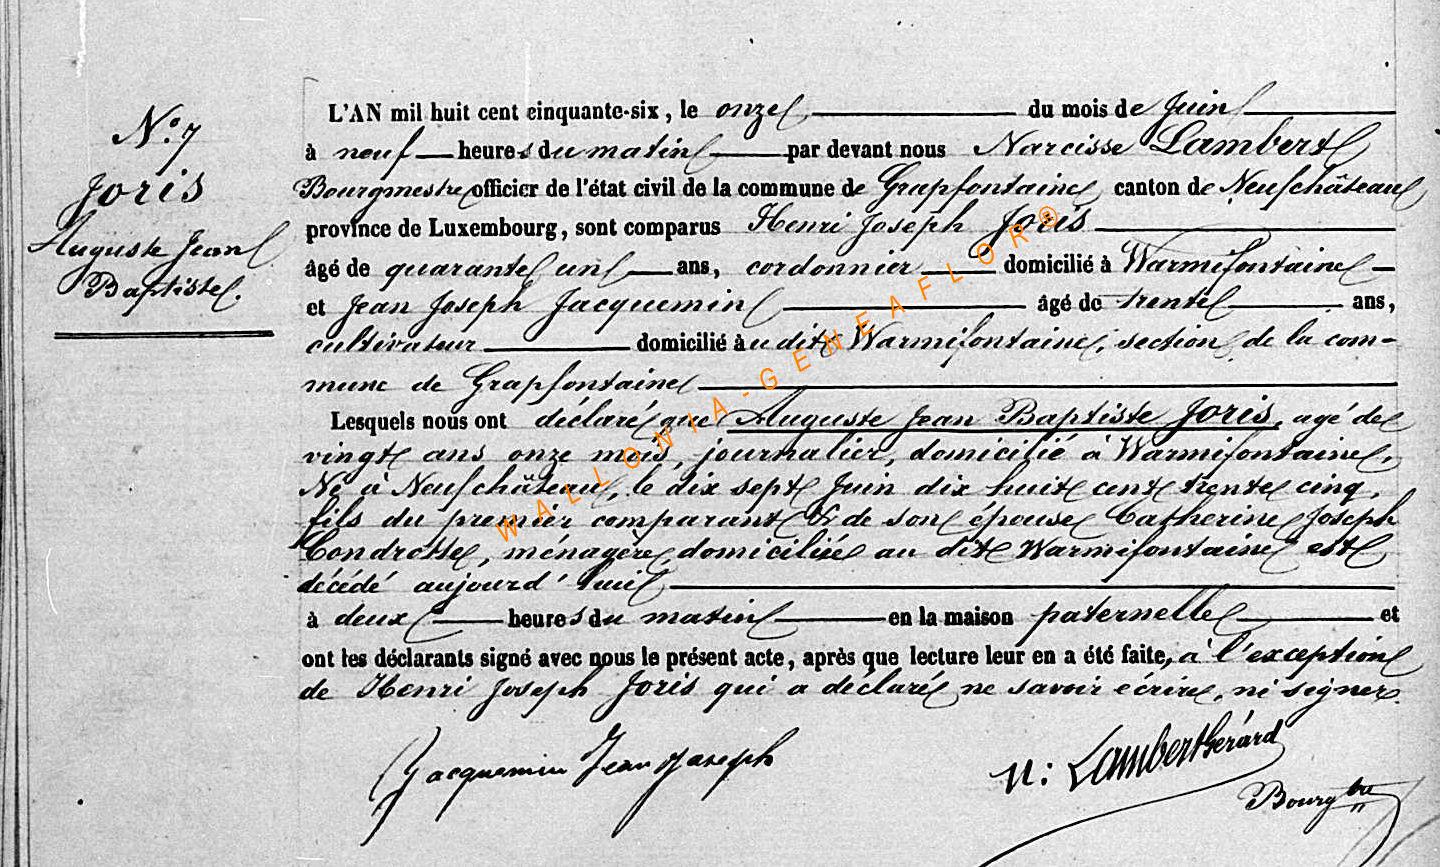 N.° 7
Joris
Auguste Jean
Baptiste.
L'AN mil huit cent cinquante-six, le onze du mois de Juin
à neuf heures du matin par devant nous Narcisse Lambert
Bourgmestre officier de l'état civil de la commune de Grapfontaine canton de Neufchâteau
province de Luxembourg, sont comparus Henri Joseph Joris
âgé de quarante un ans, cordonnier domicilié à Warmifontaine
et Jean Joseph Jacquemin âgé de trente ans,
cultivateur domicilié au dit Warmifontaine, section de la com-
mune de Grapfontaine
Lesquels nous ont déclaré que Auguste Jean Baptiste Joris, agé de
vingt ans onze mois, journalier, domicilié à Warmifontaine,
Né à Neufchâteau, le dix sept Juin dix huit cent trente cinq,
fils du premier comparant & de son épouse Catherine Joseph
Condrotte, ménagère, domiciliée au dit Warmifontaine est
décédé aujourd'huil
à deux heures du matin en la maison paternelle et
ont les déclarants signé avec nous le présent acte, après que lecture leur en a été faite, à l'exception
de Henri Joseph Joris qui a déclaré ne savoir écrire, ni signer.
Jacquemin Jean Joseph
N: Lambert Gérard
Bourgtre
WALLONIA-GENEAFLOR®